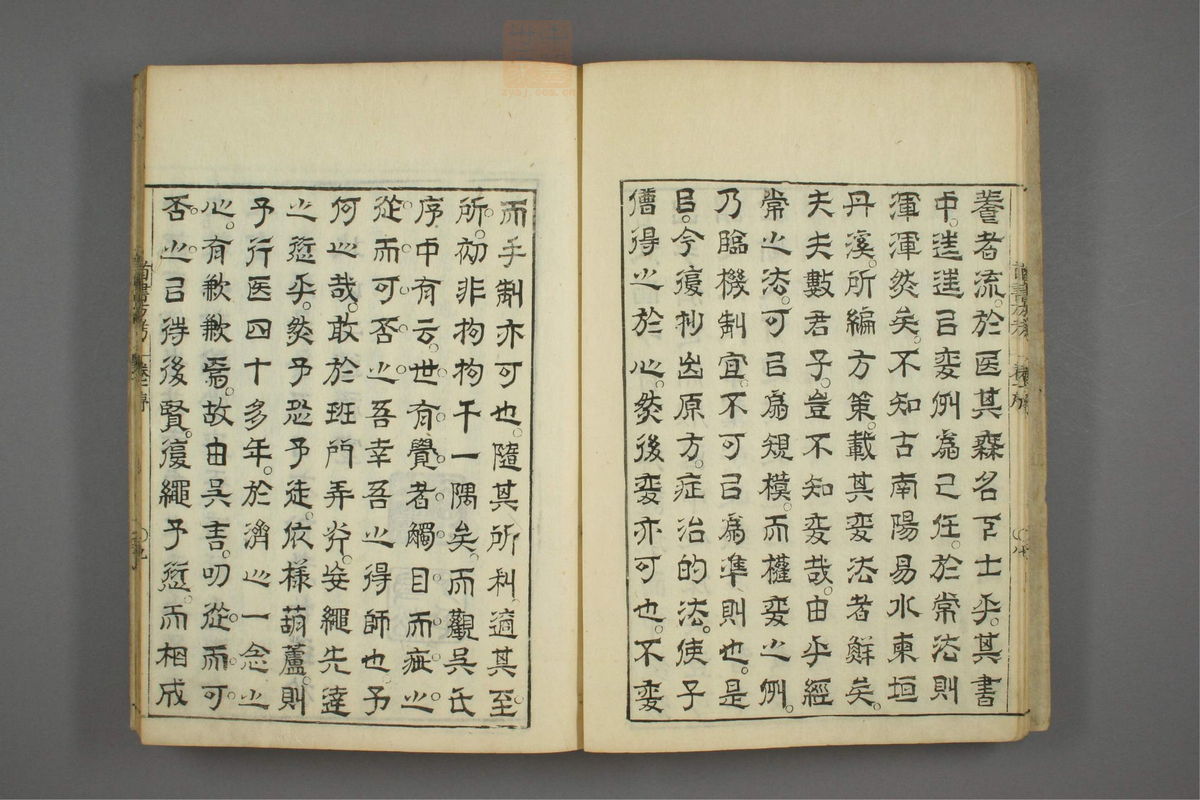 養者流。於医其森名下士乎。其書
中。進進㠯変例為己任。於常法則
渾渾然矣。不知古南陽易水東垣
丹溪。所編方策。載其変法者鮮矣。
夫夫數君子。豈不知変哉。由乎經
常之法。可㠯為規模。而權変之例。
乃臨機制宜。不可㠯為準則也。是
㠯。今復抄出原方。症治的法。使子
儕得之於心。然後変亦可也。不変
而手制亦可也。隨其所利。適其至
所。初非拘拘于一隅矣。而觀吳氏
序中有云。世有覺者。觸目而疵之
從而可否之。吾幸吾之得師也。予
何之哉。敢於班門弄斧。妄繩先達
之愆乎。然予恐予徒。依樣葫蘆。則
予行医四十多年。於濟之一念之
心。有歉歉焉。故由吳言。叨從而可
否之。㠯待後賢。復繩予愆。而相成